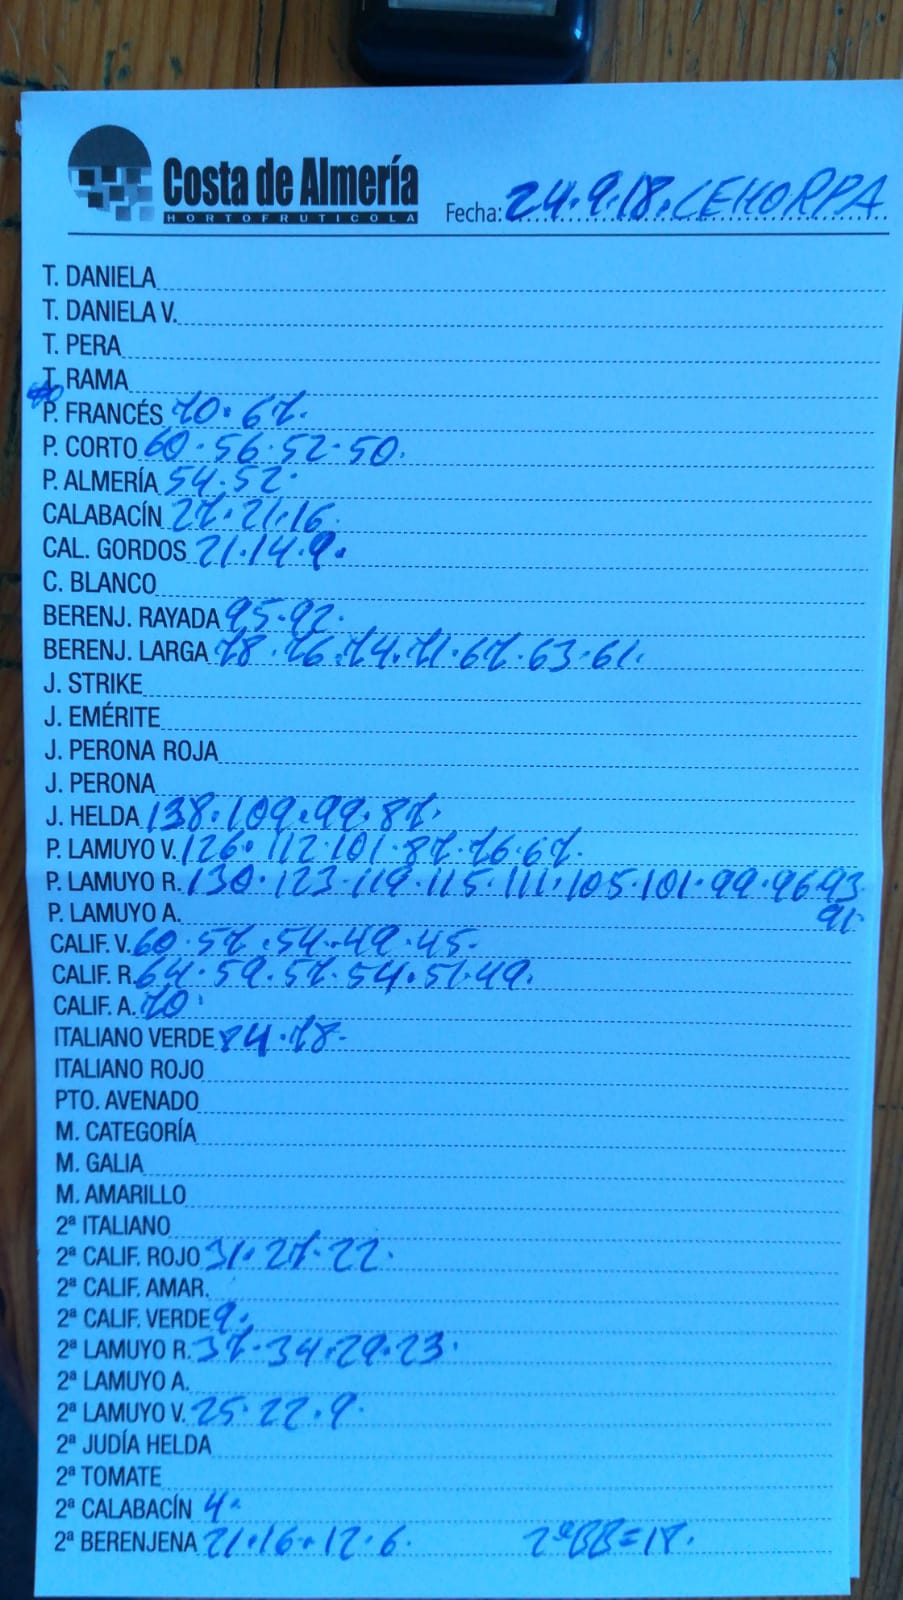 Costa de Almería
HORTOFRUTICOLA
Fecha: 24.9.18. CEHORPA
T. DANIELA
T. DANIELA V.
T. PERA
T. RAMA
P. FRANCÉS 70. 67.
P. CORTO 60. 56. 52. 50.
P. ALMERÍA 54. 52.
CALABACÍN 27. 21. 16.
CAL. GORDOS 21. 14. 9.
C. BLANCO
BERENJ. RAYADA 95. 92.
BERENJ. LARGA 78. 76. 74. 71. 67. 63. 61.
J. STRIKE
J. EMÉRITE
J. PERONA ROJA
J. PERONA
J. HELDA 138. 109. 99. 87.
P. LAMUYO V. 126. 112. 101. 87. 76. 67.
P. LAMUYO R. 130. 123. 119. 115. 111. 105. 101. 99. 96. 93.
P. LAMUYO A. 91.
CALIF. V. 60. 57. 54. 49. 45.
CALIF. R. 64. 59. 57. 54. 51. 49.
CALIF. A. 70.
ITALIANO VERDE 84. 78.
ITALIANO ROJO
PTO. AVENADO
M. CATEGORÍA
M. GALIA
M. AMARILLO
2ª ITALIANO
2ª CALIF. ROJO 31. 27. 22.
2ª CALIF. AMAR.
2ª CALIF. VERDE 9.
2ª LAMUYO R. 37. 34. 29. 23.
2ª LAMUYO A.
2ª LAMUYO V. 25. 22. 9.
2ª JUDÍA HELDA
2ª TOMATE
2ª CALABACÍN 4.
2ª BERENJENA 21. 16. 12. 6. 2ªBB=18.